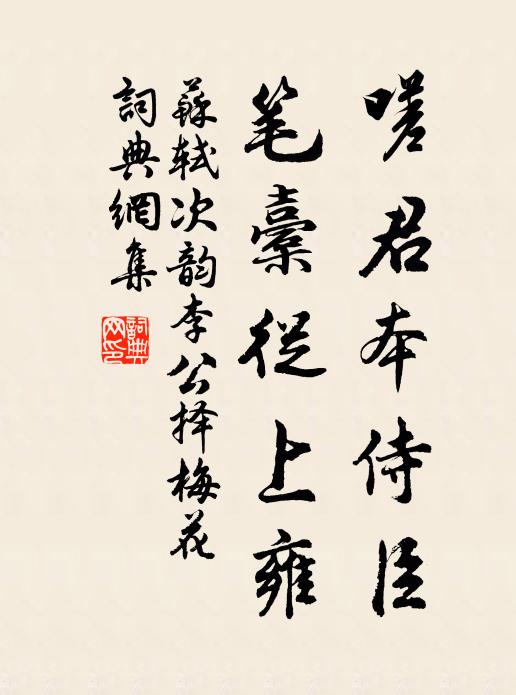 嗟君本侍臣
笔橐從上雍
蘇軾次韵李公择梅花
詞典網集
詞典网印